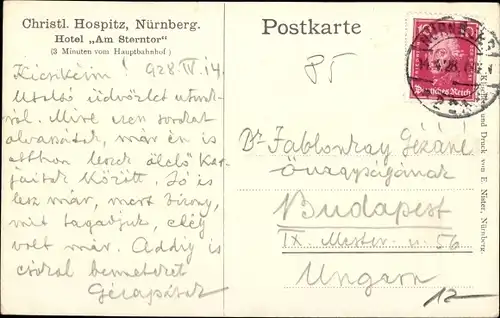 Christl. Hospitz, Nürnberg.
Hotel „Am Sterntor"
(3 Minuten vom Hauptbahnhof)
Kicsikéim! 928. IV. 14.
Utolsó üdvözlet utunk-
ról. Mire ezen sorokat
olvassátok, már én is
otthon leszek ölelő kar-
jaitok között. Jó is
lesz már, mert bizony,
mit tagadjuk, elég
volt már. Addig is
csókol benneteket
Gézapátok
Postkarte
85
NÜRNBERG
Deutsches Reich
Br Fablonkay Gézáné
őnagyságának
Budapest
IX. Mester u. 56
Ungarn
12
und Druck von E. Nister, Nürnberg.